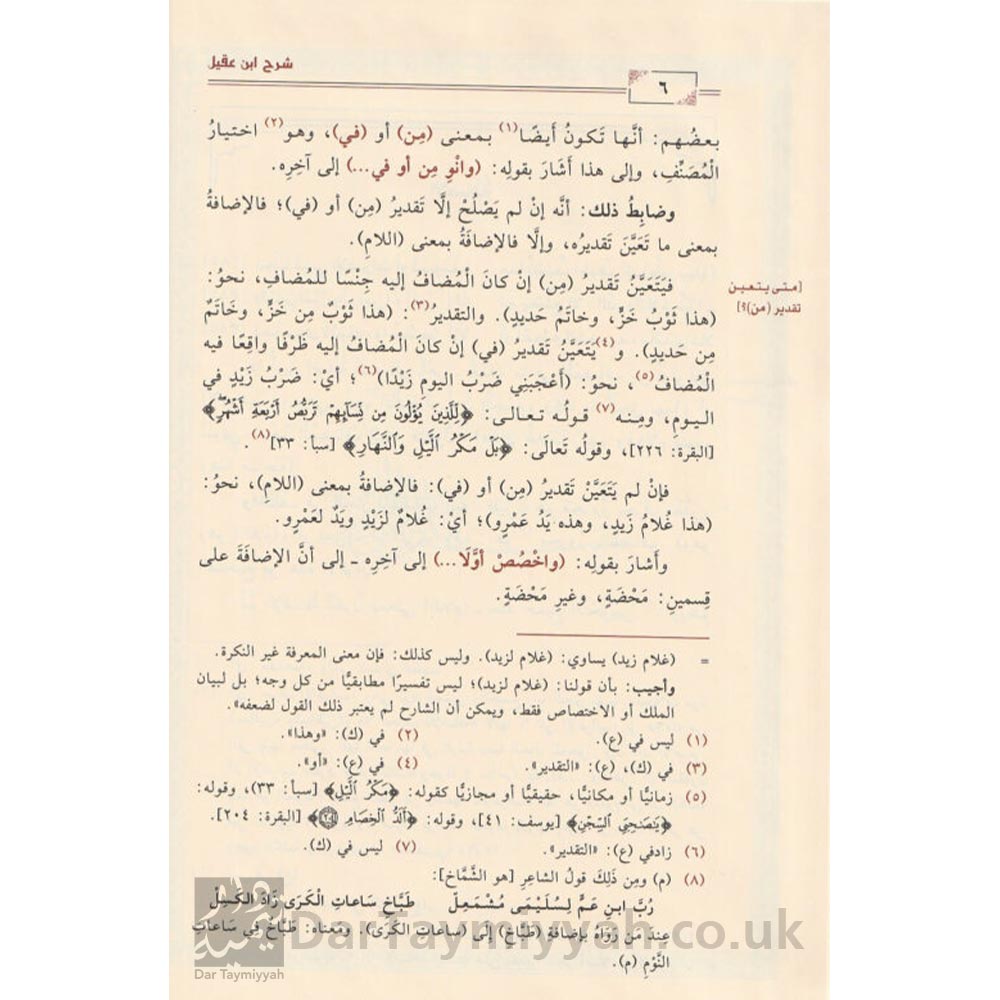 شرح ابن عقيل
٦
بعضُهم: أنَّها تَكونُ أَيضًا(١) بـمعنى (مِن) أو (في)، وهو(٢) اختيارُ
الْمُصَنِّفِ، وإلى هذا أَشَارَ بقولِه: (وانْوِ مِن أو في...) إلى آخِرِه.
وضابِطُ ذلك: أنَّه إنْ لم يَصْلُحْ إلَّا تَقديرُ (مِن) أو (في)؛ فالإضافةُ
بمعنى ما تَعَيَّنَ تَقديرُه، وإلَّا فالإضافَةُ بمعنى (اللامِ).
[متى يتعين
تقدير (من)؟]
فيَتَعَيَّنُ تَقديرُ (مِن) إنْ كانَ الْمُضافُ إليه جِنْسًا للمُضافِ، نحوُ:
(هذا ثَوْبُ خَزٍّ، وخاتَمُ حَديدٍ). والتقديرُ(٣): (هذا ثَوْبٌ مِن خَزٍّ، وخَاتَمٌ
مِن حَديدٍ). و(٤)يَتَعَيَّنُ تَقديرُ (في) إنْ كانَ الْمُضافُ إليه ظَرْفًا واقِعًا فيه
الْمُضافُ(٥)، نحوُ: (أَعْجَبَنِي ضَرْبُ اليومِ زَيْدًا)(٦)؛ أيْ: ضَرْبُ زَيْدٍ في
اليومِ، ومِنه(٧) قولُه تعالى: ﴿لِلَّذِينَ يُؤْلُونَ مِن نِّسَآئِهِمْ تَرَبُّصُ أَرْبَعَةِ أَشْهُرٍ﴾
[البقرة: ٢٢٦]، وقولُه تَعالَى: ﴿بَلْ مَكْرُ ٱلَّيْلِ وَٱلنَّهَارِ﴾ [سبأ: ٣٣](٨).
فإنْ لم يَتَعَيَّنْ تَقديرُ (مِن) أو (في): فالإضافةُ بمعنى (اللامِ)، نحوُ:
(هذا غُلامُ زَيدٍ، وهذه يَدُ عَمْرٍو)؛ أيْ: غُلامٌ لزَيْدٍ ويَدٌ لعَمْرٍو.
وأَشارَ بقولِه: (واخْصُصْ أوَّلَا...) إلى آخِرِه ـ إلى أنَّ الإضافَةَ على
قِسمينِ: مَحْضَةٍ، وغيرِ مَحْضَةٍ.
= (غلام زيد) يساوي: (غلام لزيد). وليس كذلك: فإن معنى المعرفة غير النكرة.
وأجيب: بأن قولنا: (غلام لزيد)؛ ليس تفسيرًا مطابقيًّا من كل وجه؛ بل لبيان
الملك أو الاختصاص فقط، ويمكن أن الشارح لم يعتبر ذلك القول لضعفه».
(١) ليس في (ع). (٢) في (ك): «وهذا».
(٣) في (ك)، (ع): «التقدير». (٤) في (ع): «أو».
(٥) زمانيًّا أو مكانيًّا، حقيقيًّا أو مجازيًّا كقوله: ﴿مَكْرُ ٱلَّيْلِ﴾ [سبأ: ٣٣)، وقوله:
﴿يَٰصَىٰحِبَىِ ٱلسِّجْنِ﴾ [يوسف: ٤١]، وقوله: ﴿أَلَدُّ ٱلْخِصَامِ ٢٠٤﴾ [البقرة: ٢٠٤].
(٦) زادفي (ع): «التقدير». (٧) ليس في (ك).
(٨) (م) ومِن ذَلِكَ قولُ الشاعرِ [هو الشَّمَّاخ]:
رُبَّ ابنِ عَمٍّ لِسُلَيْمَى مُشْمَعِلّ طَبَّاخِ سَاعاتِ الْكَرَى زَادَ الكَسِلْ
عِندَ مَن رَوَاهُ بإضافَةِ (طَبَّاخ) إلَى (ساعاتِ الكَرَى). ومعناه: طَبَّاخٌ فِي سَاعَاتِ
النَّوْمِ (م).
Dar Taymiyyah
DarTaymiyyah.co.uk